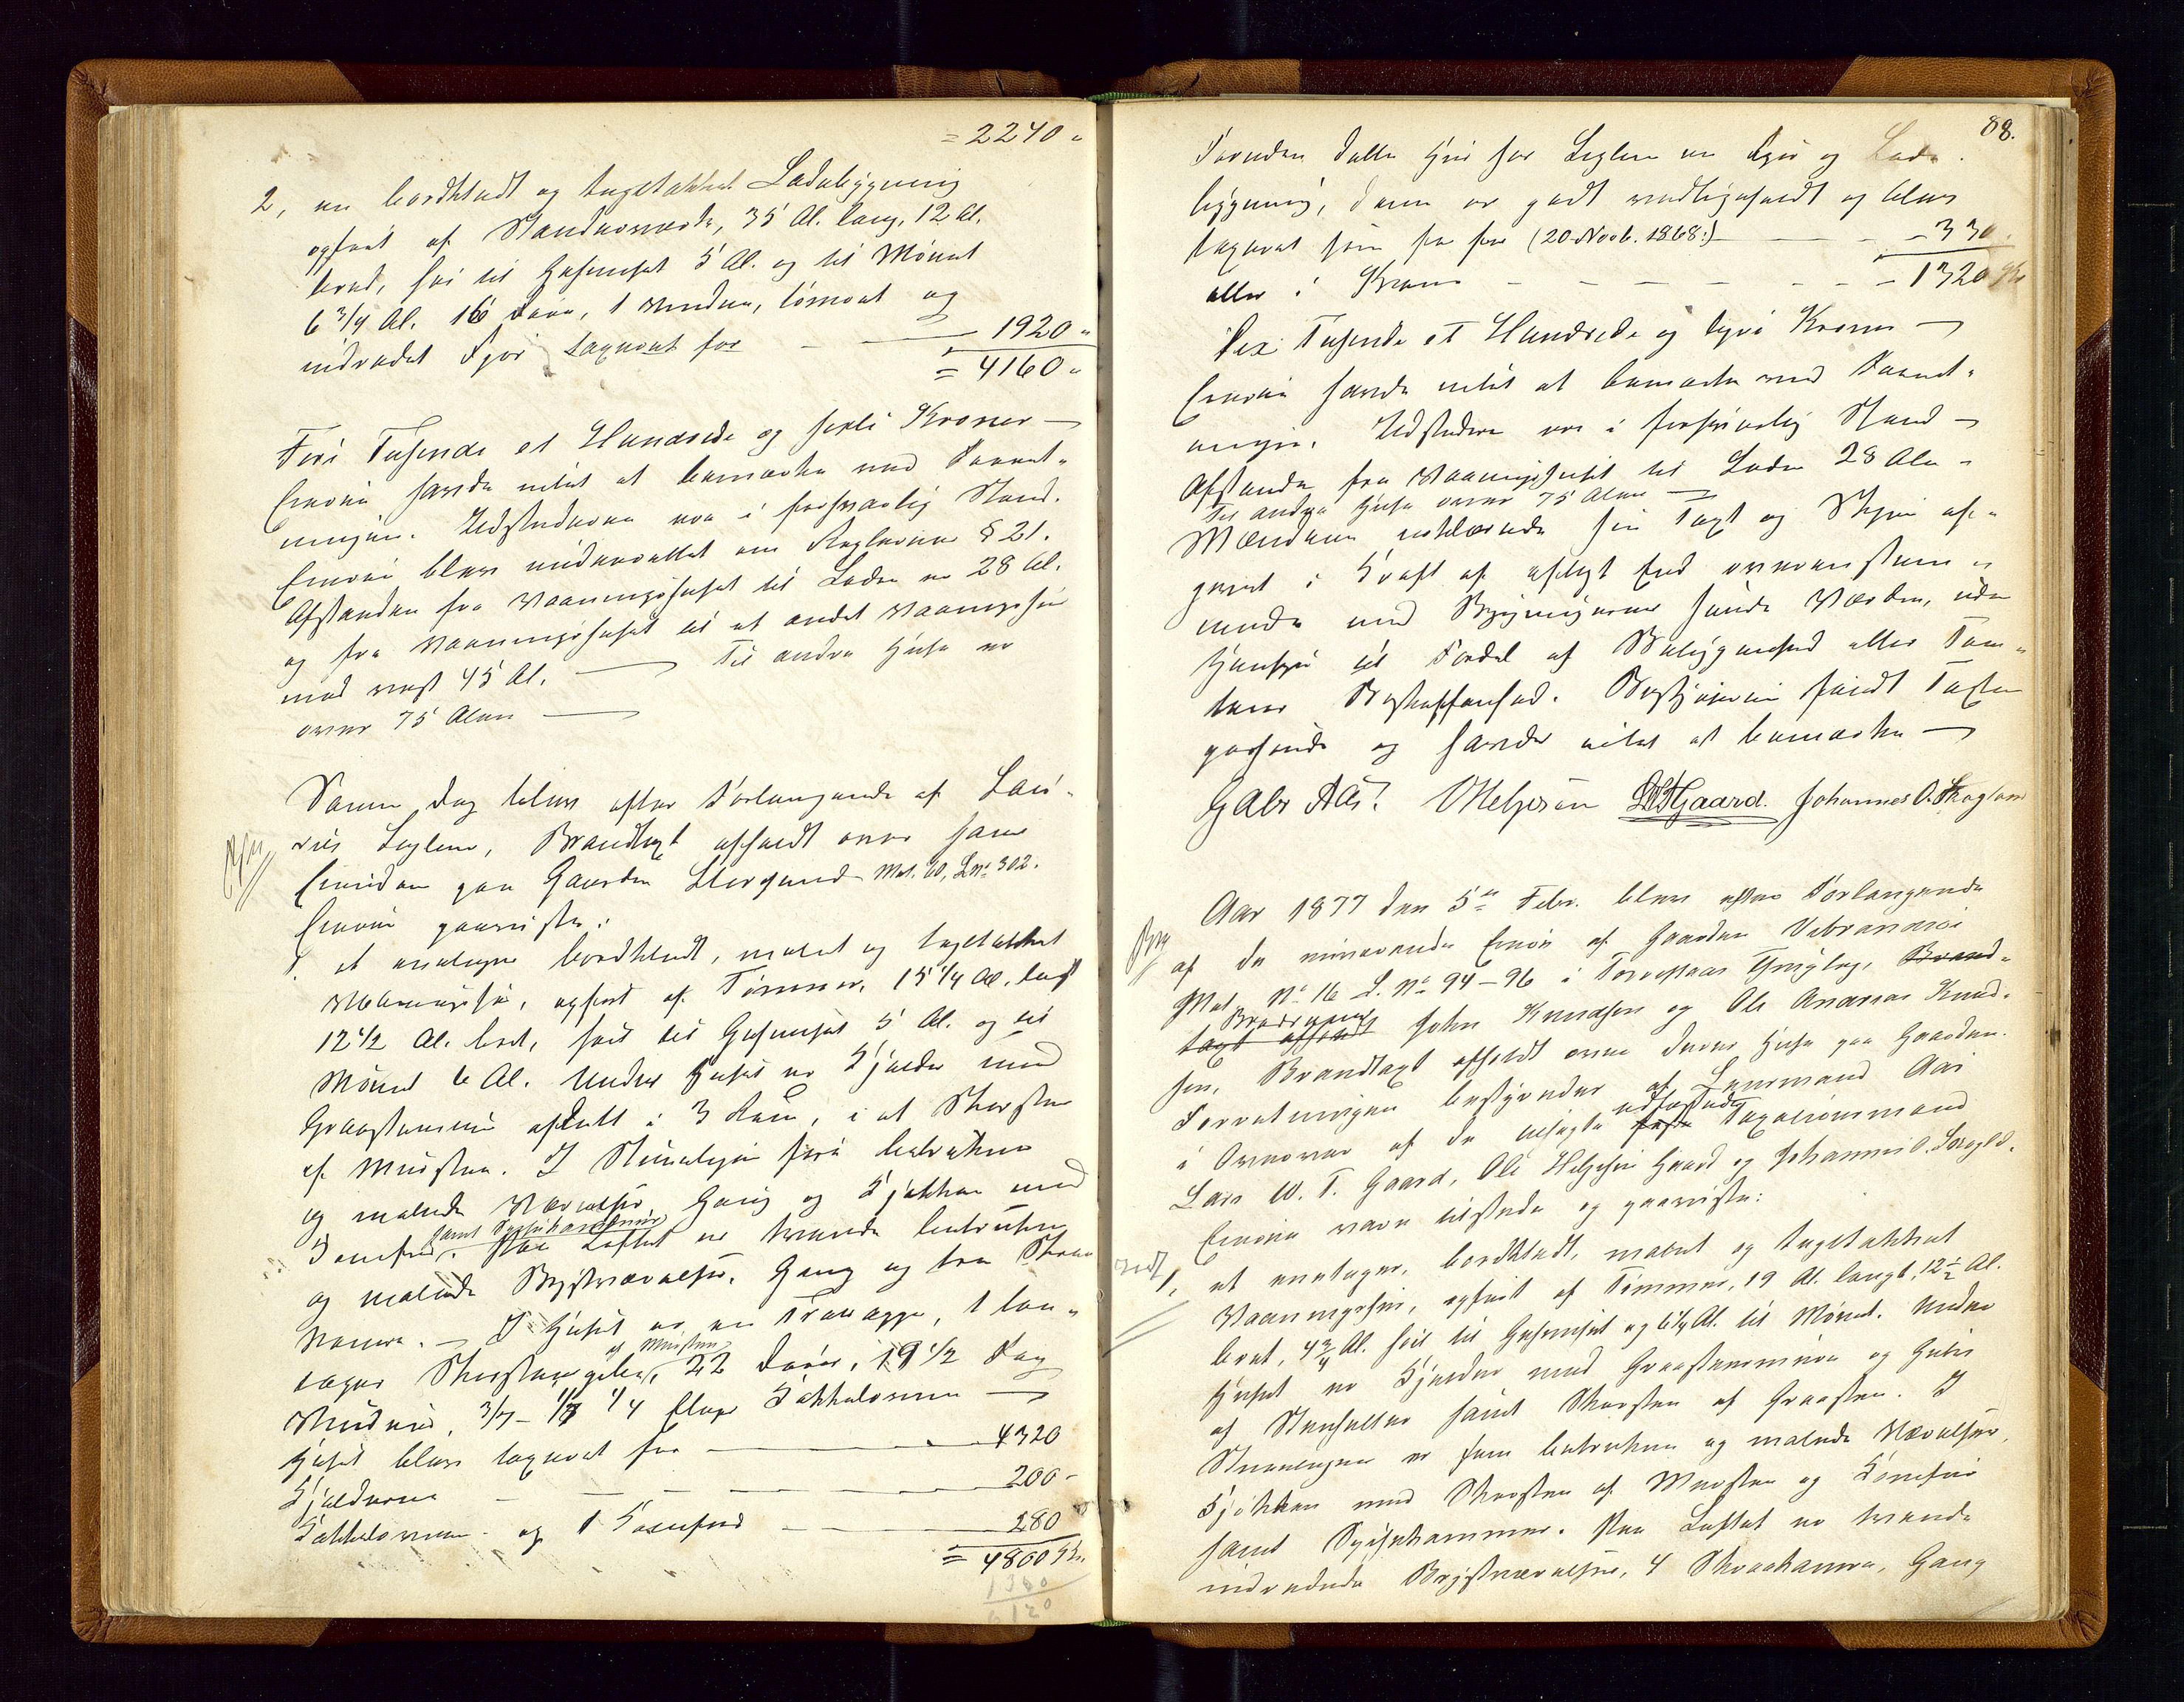 = 2240 "
2, en bordklædt og tagstakket Ladebygning
opført af Standværværk, 35 Al. lang, 12 Al.
bred, høi til Gesimset 5 Al. og til Mønet
6 3/4 Al. 16 Døre, 1 Vindue, tømret og
indredet Fjøs taxeret for — 1920 "
= 4160 "
Fire Tusende et Hundrede og sexti Kroner —
Eieren havde intet at bemærke ved Forret-
ningen. Ildstederne var i forsvarlig Stand.
Eieren blev underrettet om Reglerne § 21.
Afstanden fra Vaaningshuset til Laden er 28 Al.
og fra Vaaningshuset til et andet Vaaningshus
mod vest 45 Al. — Til andre Huse er
over 75 Alen —
Samme Dag blev efter Forlangende af Lau-
rits Leglene, Brandtaxt afholdt over hans
Eiendom paa Gaarden Mat. 10, L.No 302.
Eieren paaviste:
1. et enetages bordklædt, malet og tagstakket
Vaaningshus, opført af Tømmer, 15 1/4 Al. langt
12 1/2 Al. bredt, høit til Gesimset 5 Al. og til
Mønet 6 Al. Under Huset er Kjelder med
Graastensmur afdelt i 3 Rum, i et Skorsten
af Mursten. I Stueetagen fire betrukne
og malede Værelser, Gang og Kjøkken med
Komfur, samt Spisekammer. Paa Loftet er tvende betrukne
og malede Brystværelser, Gang og tre Skraa-
kamre. — I Huset er en Trappe, 1 Eta-
tages Skorstenspibe af Mursten, 22 Døre, 19 1/2 Fag
Vinduer, 3/3 - 1/3 1/4 Etages Kakkelovne —
Huset blev taxeret for — 4320
Kjelderen — 200 -
Kakkelovne og 1 Komfur — 280
= 4800 Kr.
1320
6120
88.
Foruden dette Hus har Leglene en Fjøs og Lade-
bygning, denne er godt vedligeholdt og blev
taxeret som før for (20 Novb. 1868:) — 330
eller i Kroner — 1320 Kr
Sex Tusende et Hundrede og tyve Kroner —
Eieren havde intet at bemærke ved Forret-
ningen. Ildstedene var i forsvarlig Stand —
Afstanden fra Vaaningshuset til Laden 28 Alen
Til andre Huse over 75 Alen —
Mændene erklærede sin Taxt og Skjøn af-
givet i Kraft af aflagt Eed overensstem-
mende med Bygningernes sande Værdien, uden
Hensyn til Fordel af Beliggenhed eller Tom-
tens Beskaffenhed. Bestyreren fandt Taxten
passende og havde intet at bemærke —
G Abr Aas. OHelgesen LWTGaard. Johannes O. Skogland
Aar 1877 den 5te Febr. blev efter Forlangende
af de nuværende Eiere af Gaarden Vebrandsø
Mat. No 16 L. No 94 - 96 i Torvestad Thinglag, Brand-
taxt afholdt Brødrene John Knudsen og Ole Andreas Knud-
sen, Brandtaxt afholdt over deres Huse paa Gaarden.
Forretningen bestyredes af Lensmand Aas
i Overvær af de udsagte faste edfæstede Taxationsmænd
Lars W. T. Gaard, Ole Helgesen Gaard og Johannes O. Skogld.
Eierne vare tilstede og paaviste:
1, et enetages, bordklædt, malet og tagstakket
Vaaningshus, opført af Tømmer, 19 Al. langt, 12 1/2 Al.
bredt, 4 3/4 Al. høit til Gesimset og 6 1/4 Al. til Mønet. Under
Huset er Kjelder med Graastensmure og Gulv
af Stenheller samt Skorsten af Graasten. I
Stueetagen er fem betrukne og malede Værelser,
Kjøkken med Skorsten af Mursten og Komfur
samt Spisekammer. Paa Loftet er tvende
indredede Brystværelser, 4 Skraakamre, Gang